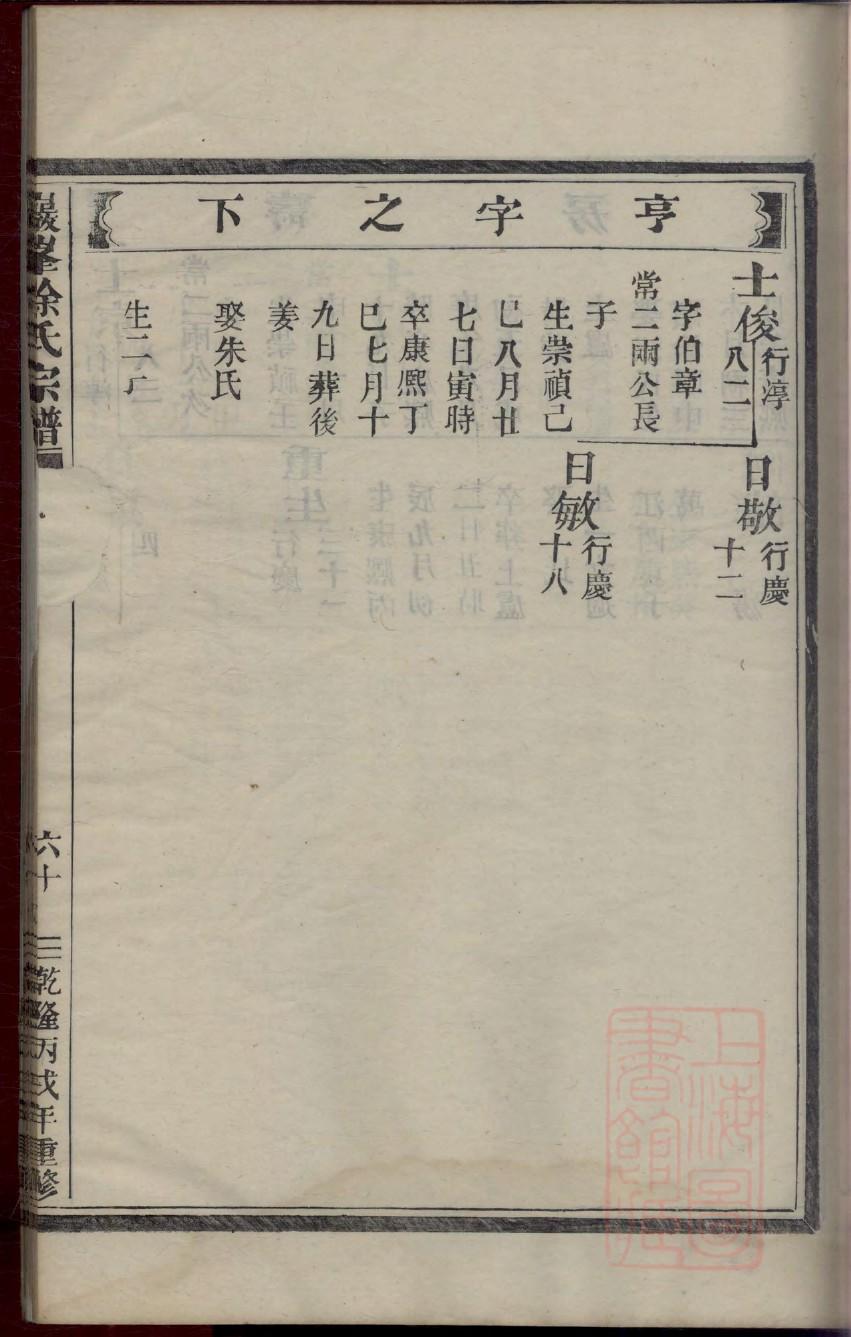 亨字之下
士俊
行淳
八二一
字伯章
常二兩公長
子
生崇禎己
巳八月廿
七日寅時
卒康熙丁
巳七月十
九日葬後
姜
娶朱氏
生二
日敬
行慶
十二
日敏
行慶
十八
巖峯徐氏宗譜
六十
乾隆丙戌年重修
上海圖
書館藏